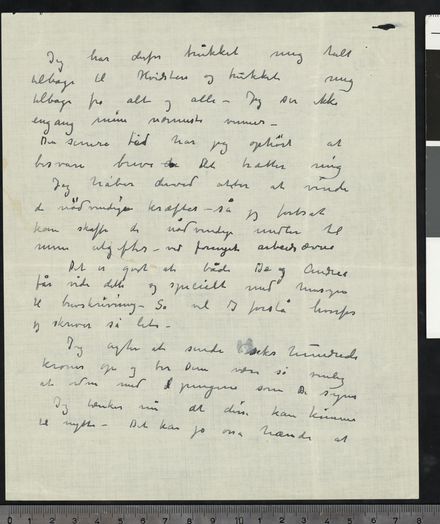 Jeg har derfor trukket mig helt
tilbage til Hvidsten og trukket mig
tilbage fra alt og alle – Jeg ser ikke
engang mine nærmeste venner –
Den senere tid har jeg ophørt at
besvare breve Det trætter mig
Jeg håber derved atter at vinde
de nødvendige kræfter – så jeg fortsat
kan skaffe de nødvendige midler til
mine utgifter – ved fornyet arbeidsævne
Det er godt at både De og Andre
får vide dette og specielt med hensyn
til brevskrivning – Så vil I forstå hvorfor
jeg skriver så lite –
Jeg agter at sende seks hundrede
kroner op og ber Dem være så venlig
at ordne med pengene som De synes
Jeg tænker nu at disse kan komme
til nytte – Det kan jo også hænde at